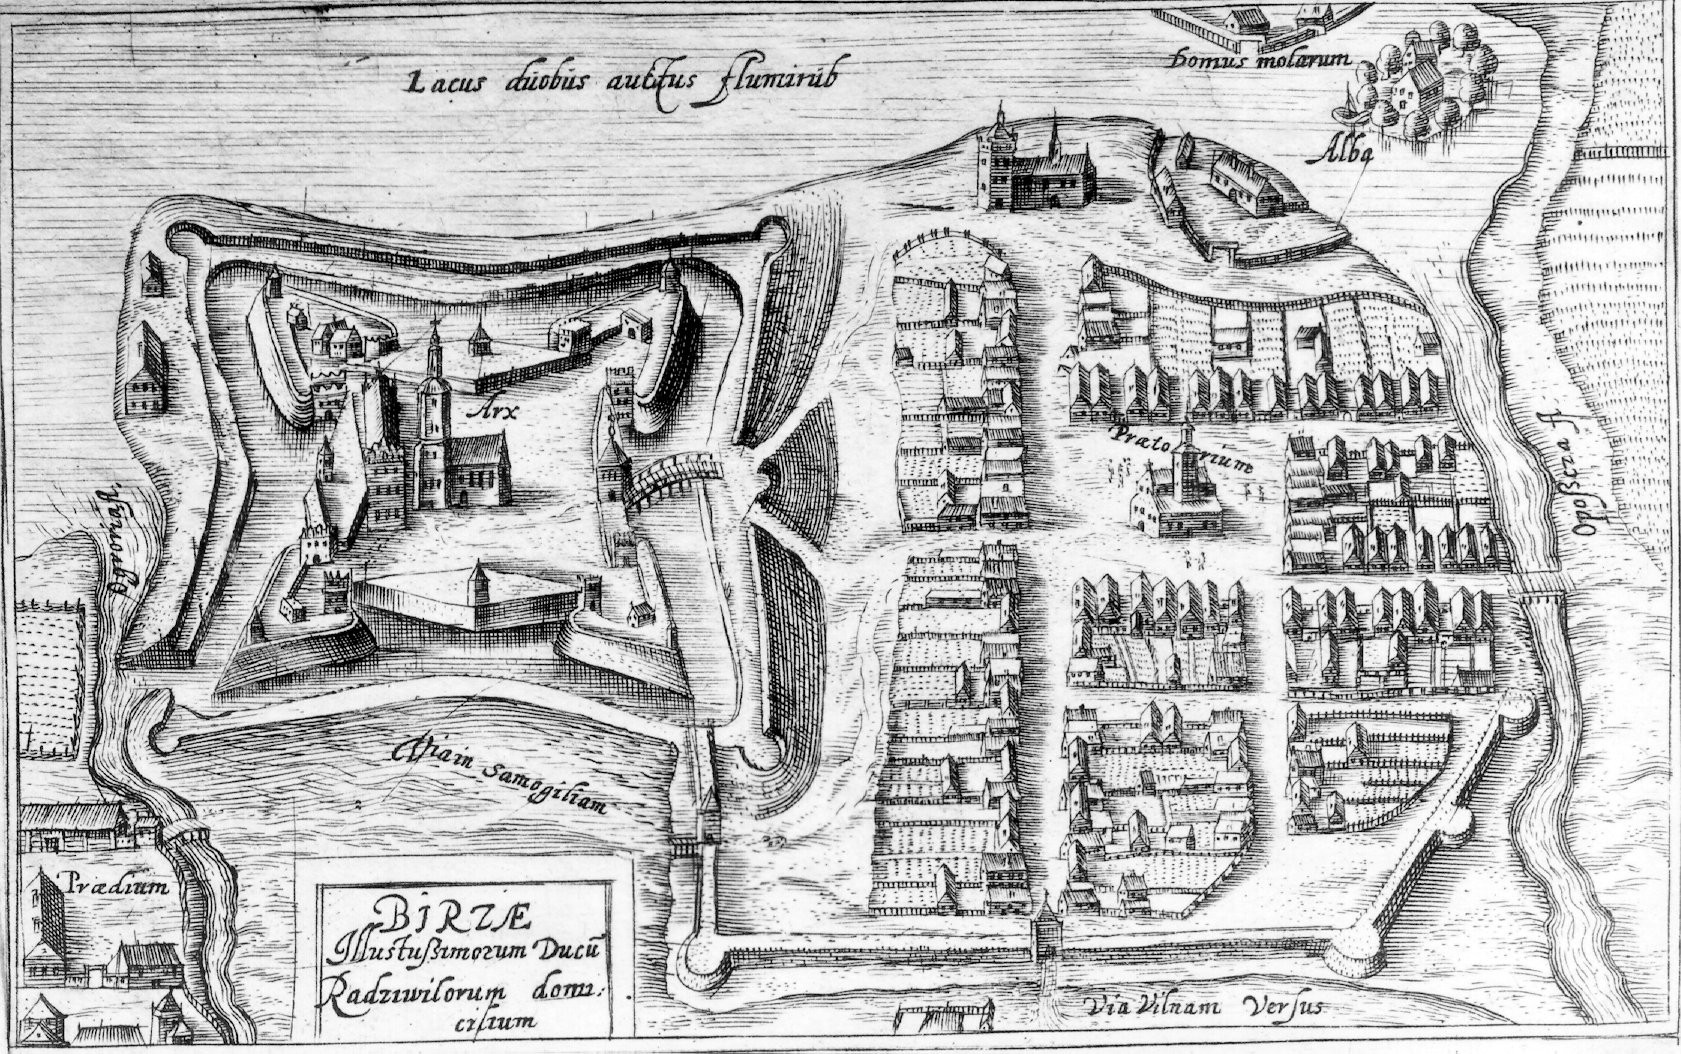 Lacus duobus auctus fluminib
Domus molarum
Alba
Arx
Prætorium
Oposcza fl
Via in Samogitiam
Prædium
BIRZÆ
Illustrissimorum Ducū
Radziwilorum domi:
cilium
Via Vilnam Versus